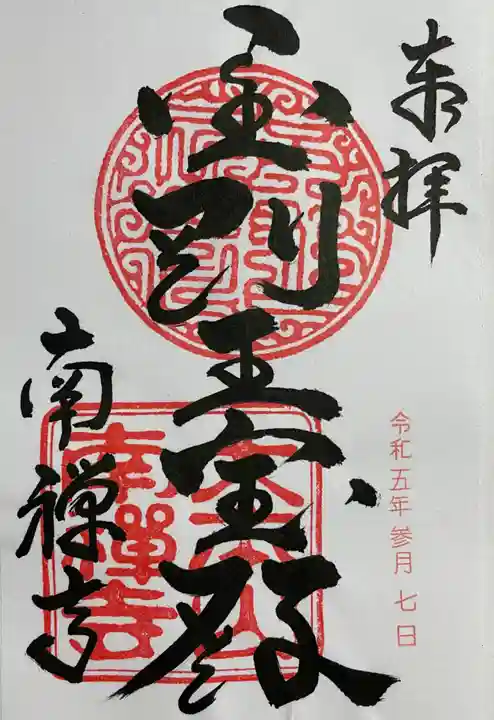 奉拝
金剛王宝殿
南禅寺
令和五年 参月 七日
大本山
南禪寺